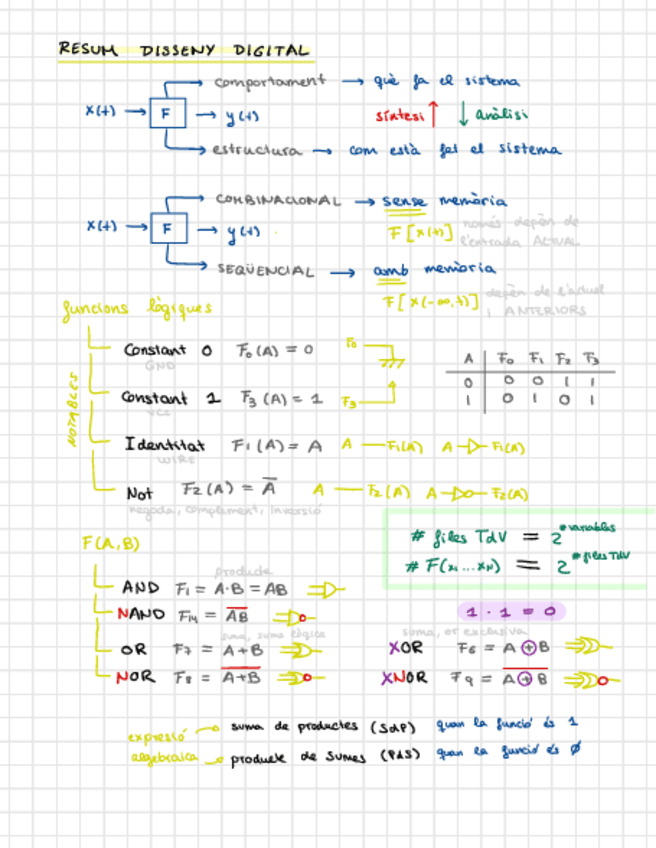 RESUM DISSENY DIGITAL
comportament → què fa el sistema
x(t) → F → y(t) síntesi ↑ ↓ anàlisi
estructura → com està fet el sistema
COMBINACIONAL → sense memòria
x(t) → F → y(t) F[x(t)] només depèn de
l'entrada ACTUAL
SEQÜENCIAL → amb memòria
F[x(-∞,t)] depèn de l'actual
i ANTERIORS
funcions lògiques
NOTABLES
Constant 0 F₀(A) = 0 F₀
GND
Constant 1 F₃(A) = 1 F₃
VCC
A F₀ F₁ F₂ F₃
0 0 0 1 1
1 0 1 0 1
Identitat F₁(A) = A A — F₁(A) A F₁(A)
WIRE
Not F₂(A) = A̅ A — F₂(A) A F₂(A)
negada, complement, inversió
# files TdV = 2^# variables
# F(x₁...xₙ) = 2^# files TdV
F(A,B)
producte
AND F₁ = A·B = AB
NAND F₁₄ = A̅B̅
1 · 1 = 0
suma, suma lògica
OR F₇ = A+B
NOR F₈ = A̅+̅B̅
suma, or exclusiva
XOR F₆ = A ⊕ B
XNOR F₉ = A̅ ⊕̅ B̅
expressió algebraica
suma de productes (SdP) quan la funció és 1
producte de sumes (PdS) quan la funció és Ø